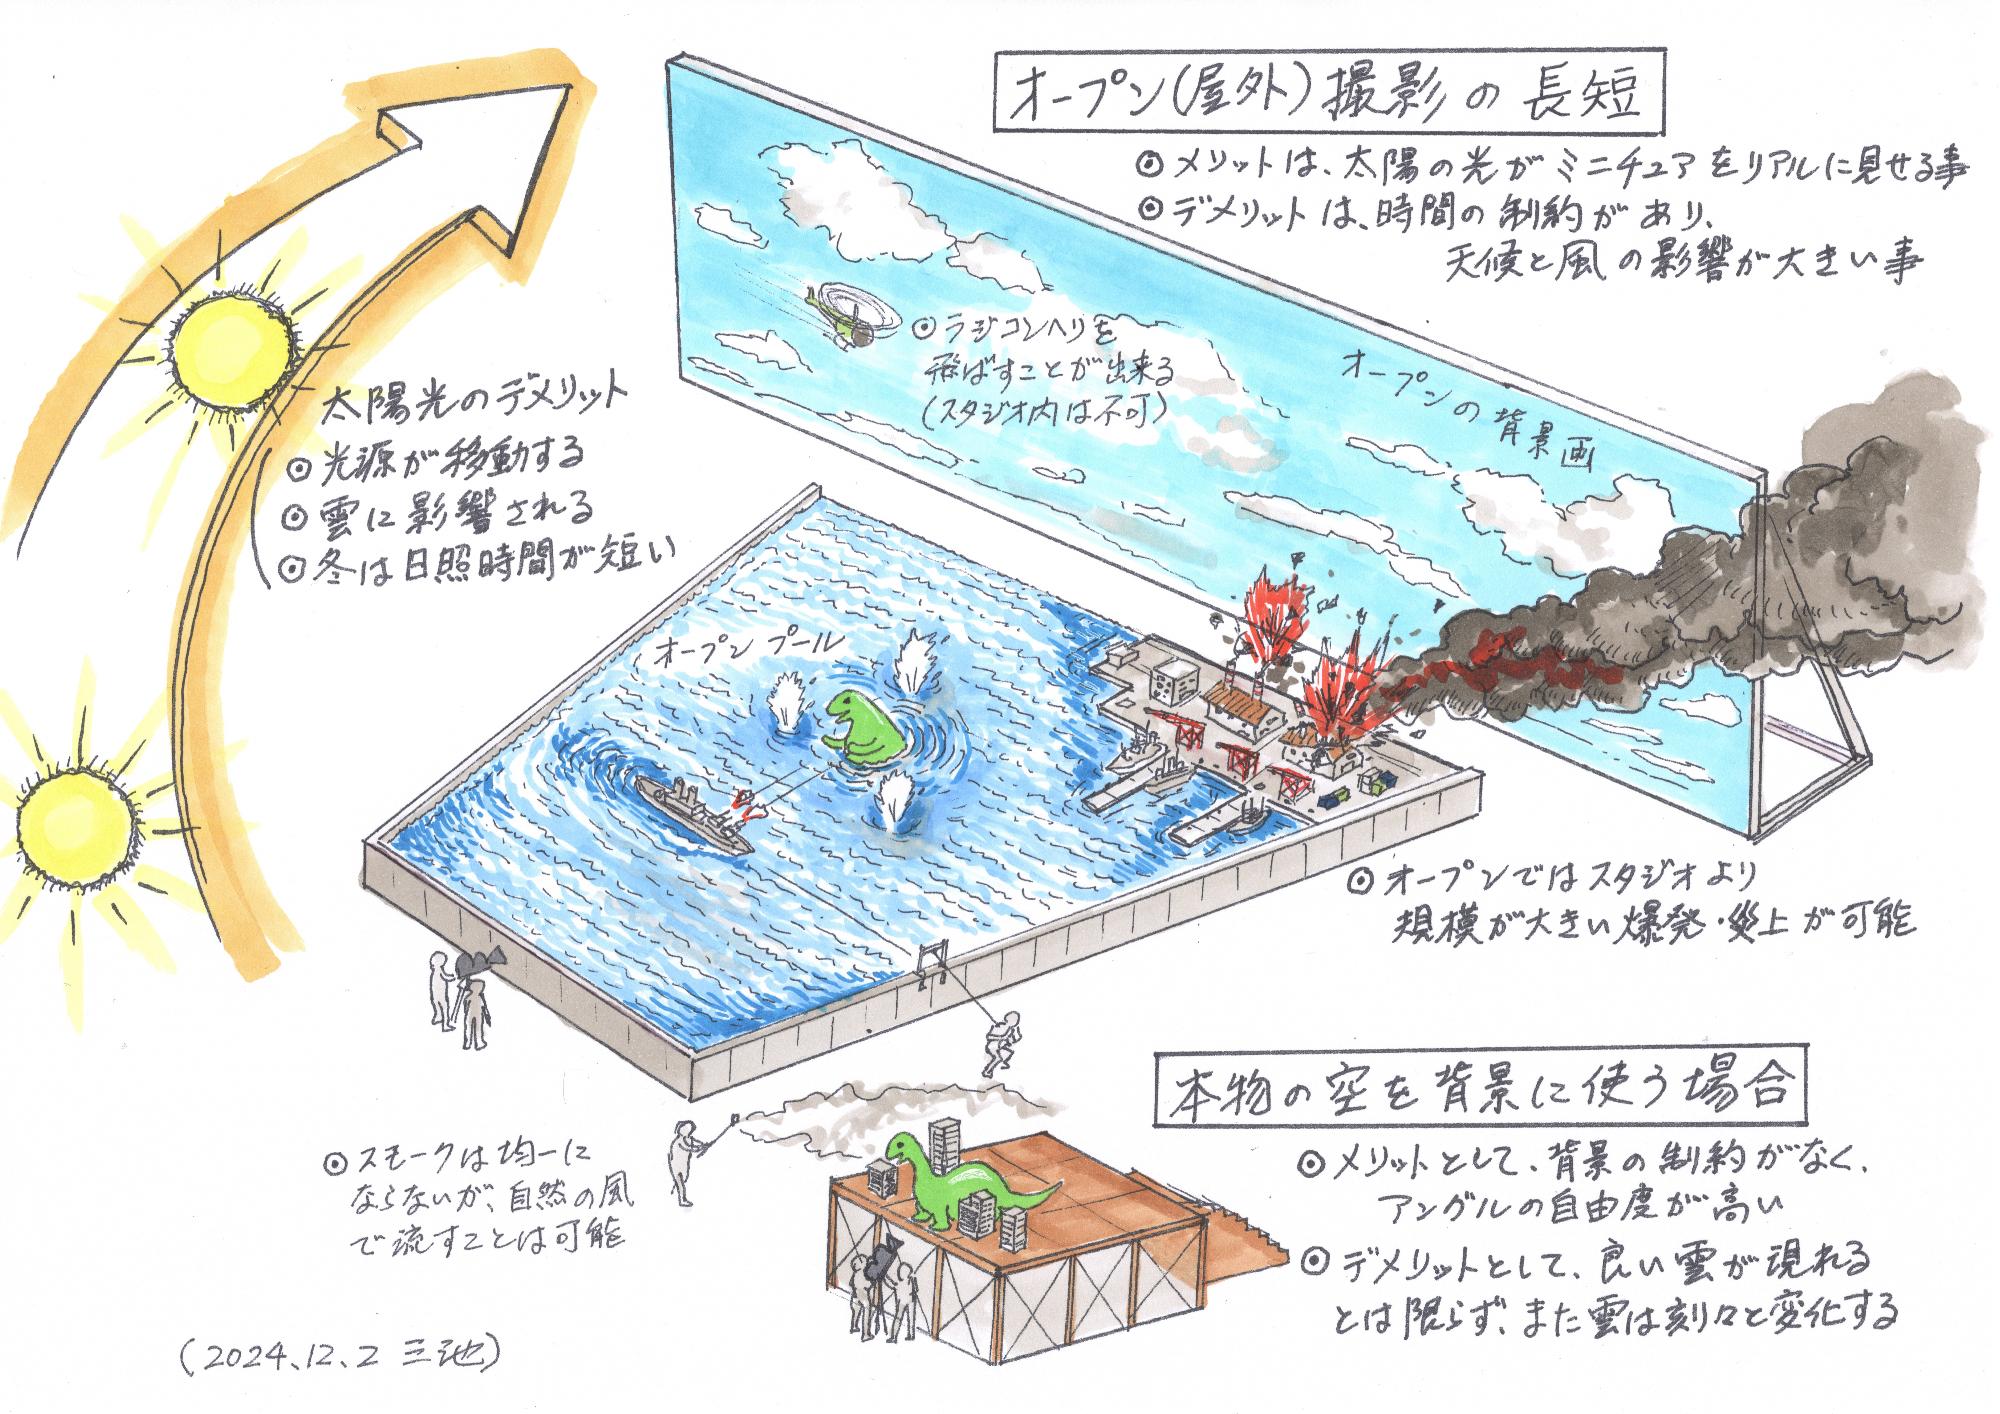 オープン(屋外)撮影の長短
◎メリットは、太陽の光がミニチュアをリアルに見せる事
◎デメリットは、時間の制約があり、
天候と風の影響が大きい事
◎ラジコンヘリを
飛ばすことが出来る
(スタジオ内は不可)
オープンの背景画
太陽光のデメリット
◎光源が移動する
◎雲に影響される
◎冬は日照時間が短い
オープンプール
◎オープンではスタジオより
規模が大きい爆発・炎上が可能
本物の空を背景に使う場合
◎メリットとして、背景の制約がなく、
アングルの自由度が高い
◎デメリットとして、良い雲が現れる
とは限らず、また雲は刻々と変化する
◎スモークは均一に
ならないが、自然の風
で流すことは可能
(2024.12.2 三池)